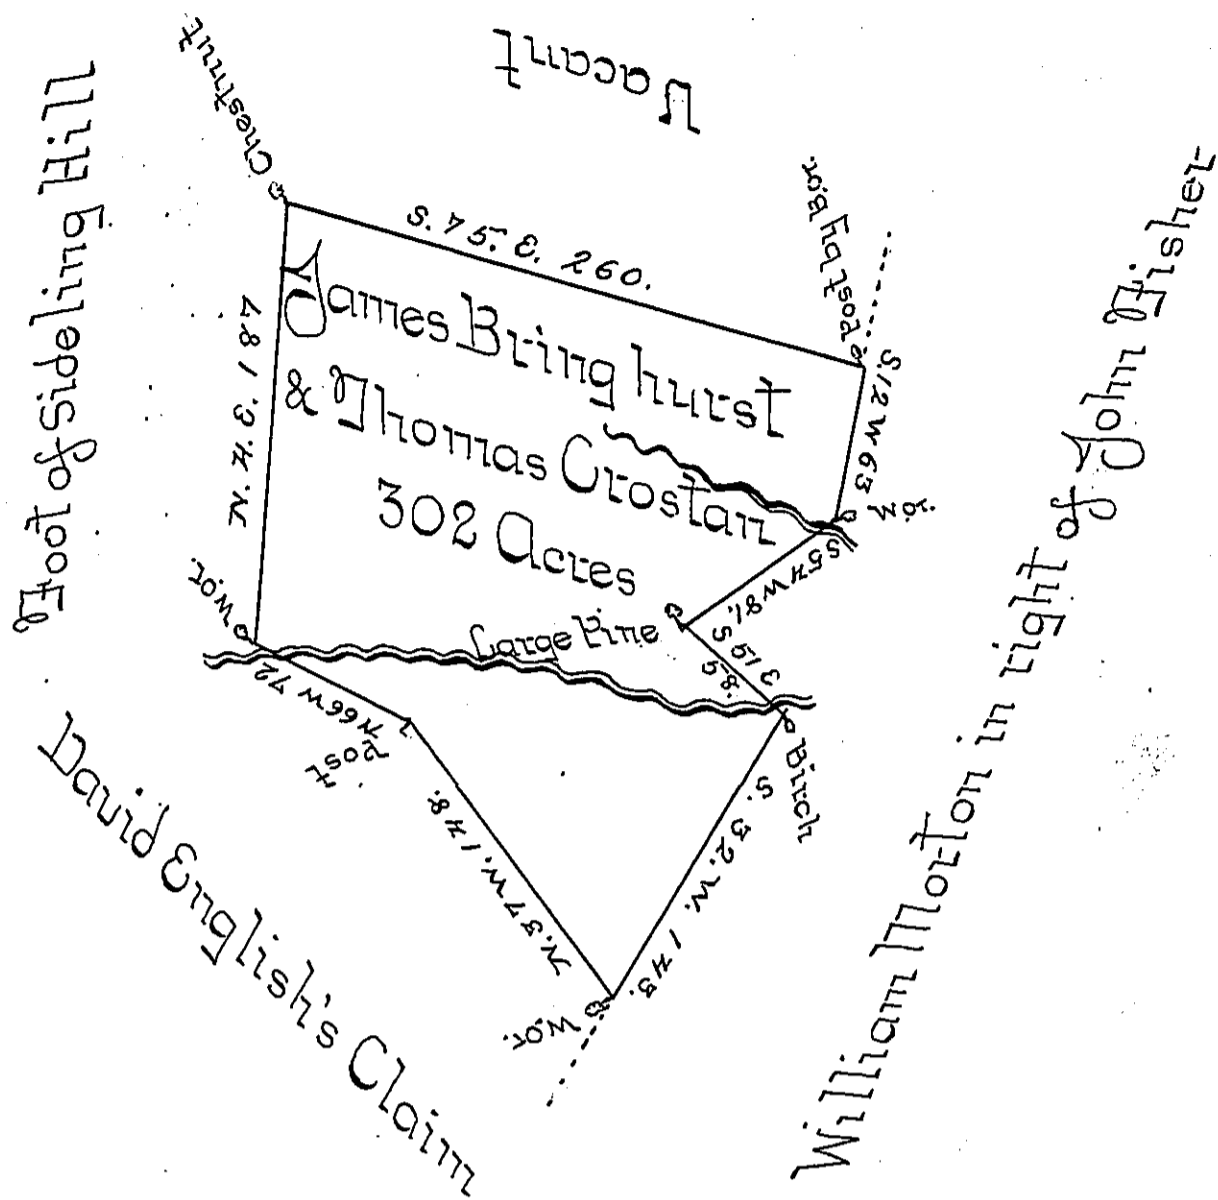 Vacant
Foot of Sideling Hill
Chestnut
S. 75. E. 260.
Post by B.or.
S. 12 W 63
N. 4. E. 187
James Bringhurst
& Thomas Crostan
302 Acres
S 54 W 81.
W.or.
Large Pine
S 19 E
N 66 W 72
Post
Birch
S. 32. W. 143.
N. 37 W. 148.
W.or.
David English's Claim
William Morton in right of John Fisher